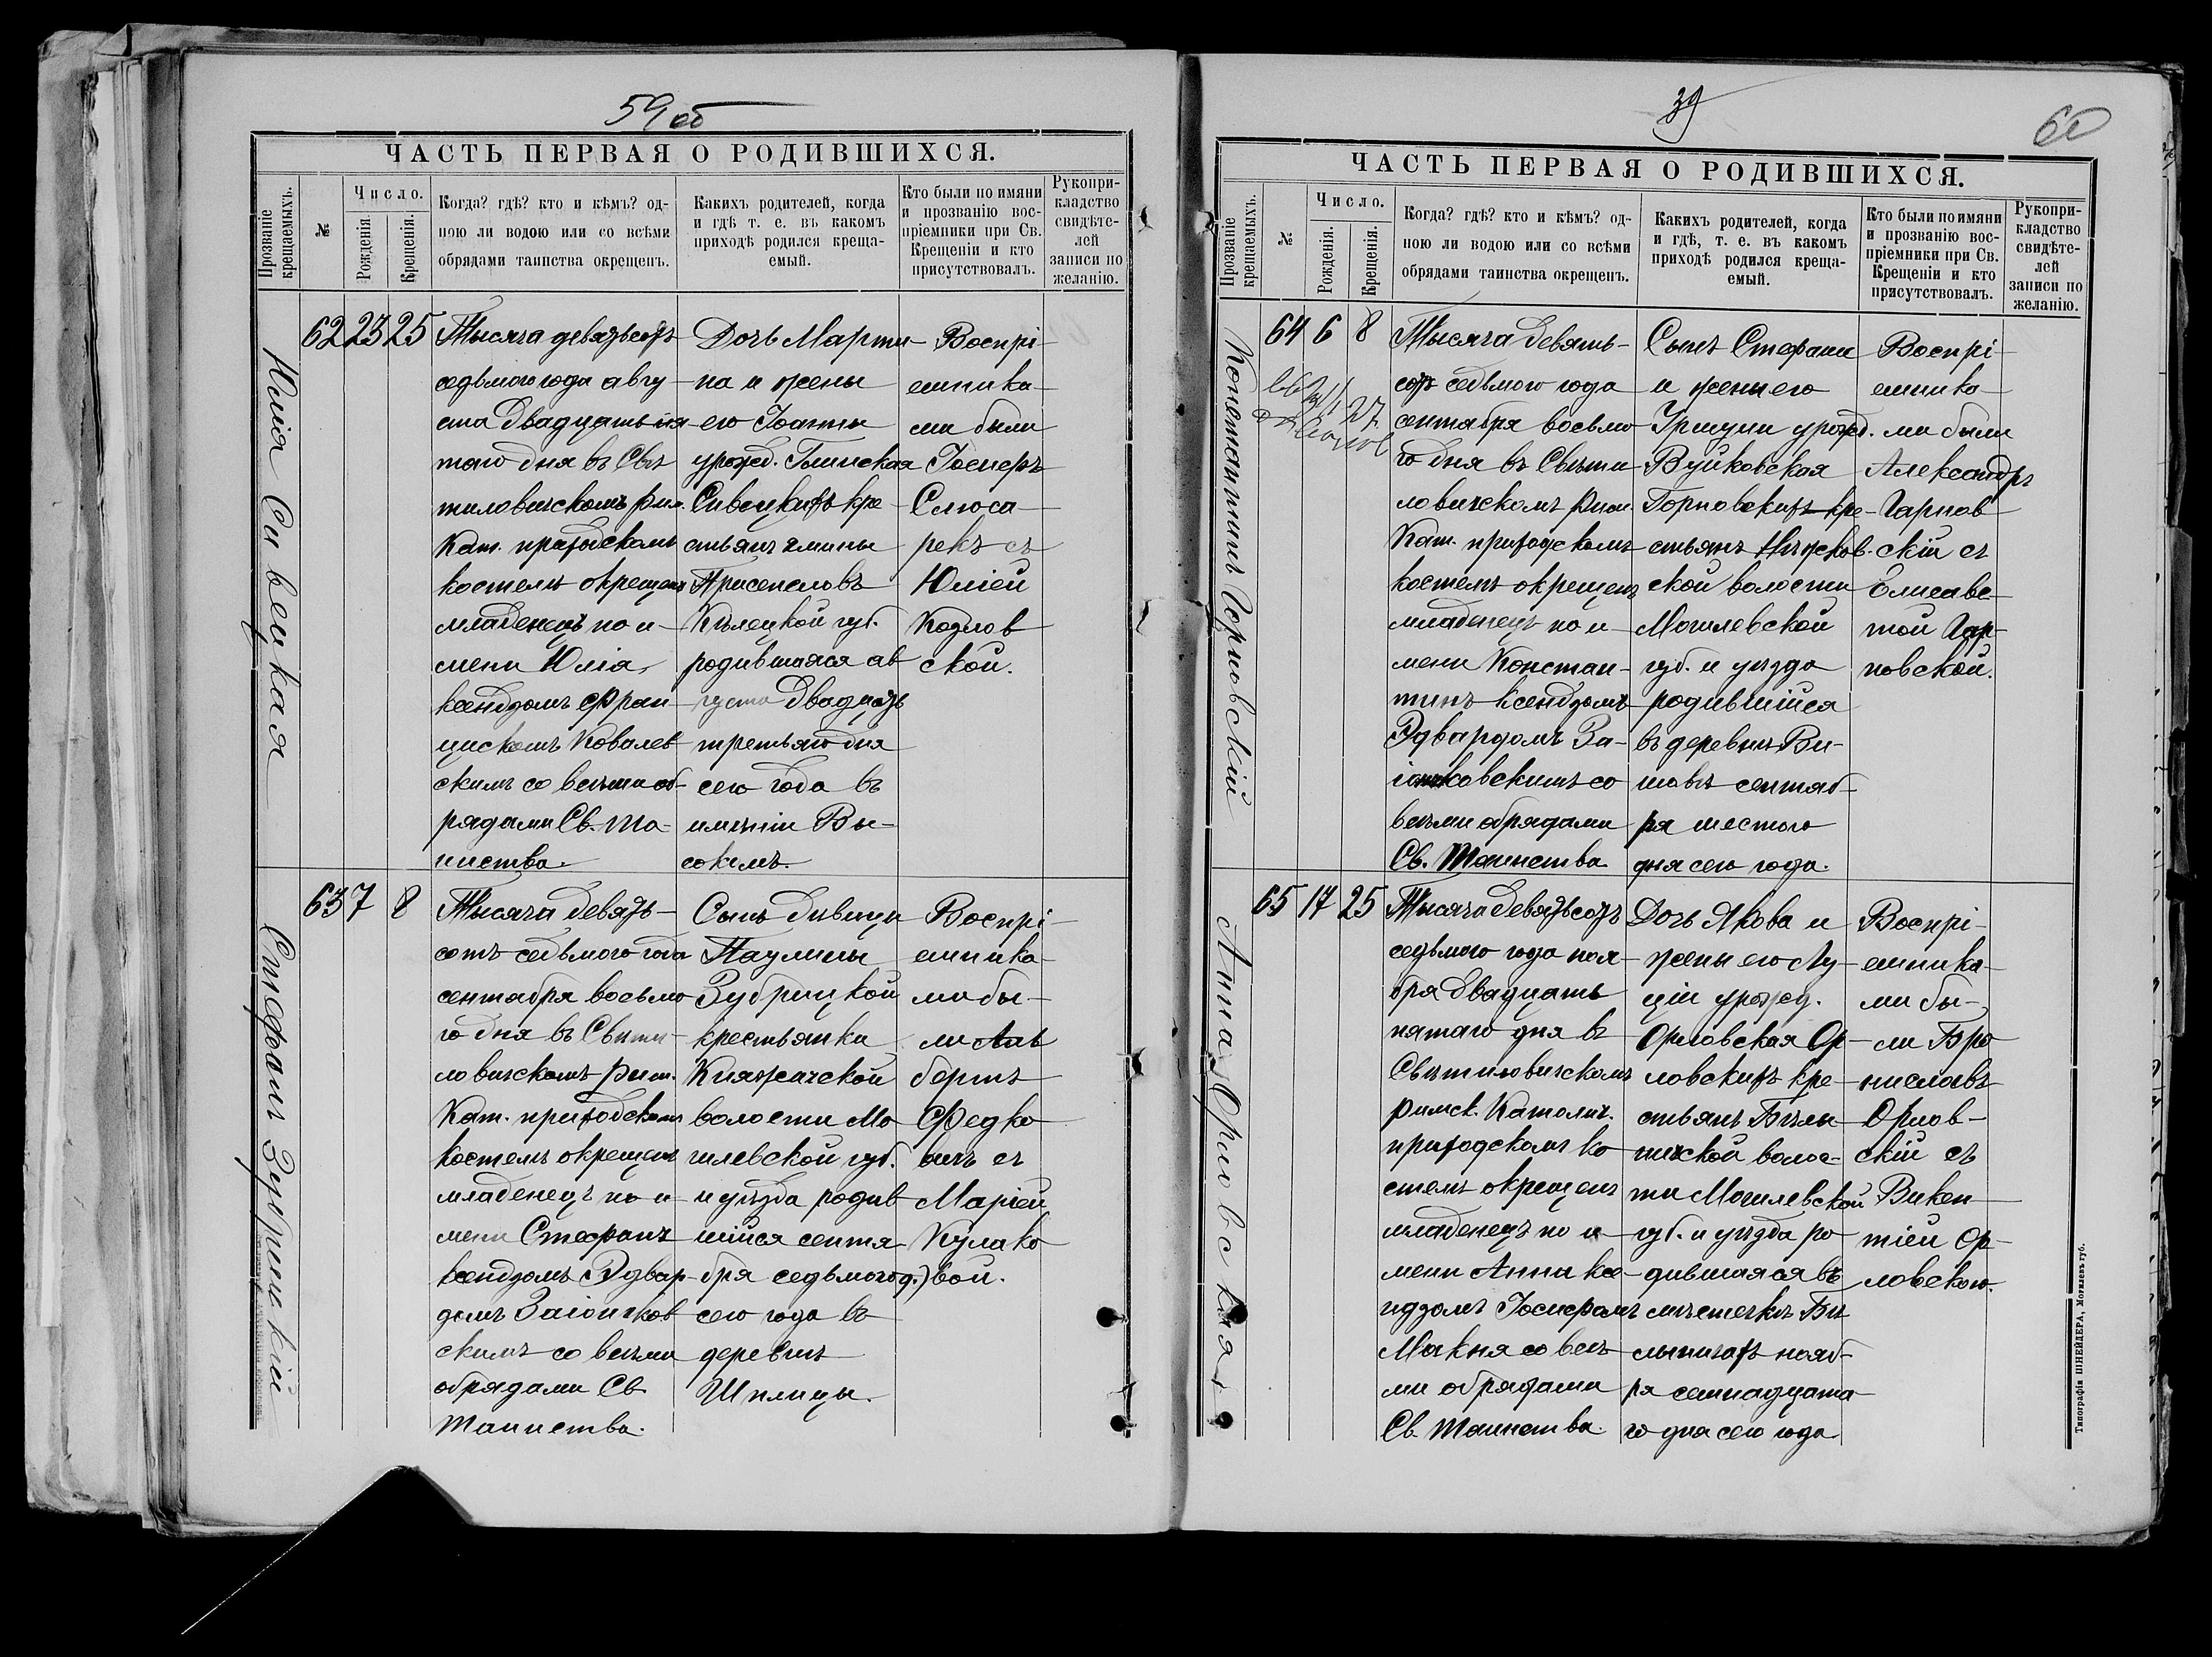 59 об
ЧАСТЬ ПЕРВАЯ О РОДИВШИХСЯ.
Прозваніе крещаемыхъ.
№
Число.
Рожденія.
Крещенія.
Когда? гдѣ? кто и кѣмъ? од-
ною ли водою или со всѣми
обрядами таинства окрещенъ.
Какихъ родителей, когда
и гдѣ т. е. въ какомъ
приходѣ родился креща-
емый.
Кто были по имяни
и прозванію вос-
пріемники при Св.
Крещеніи и кто
присутствовалъ.
Рукопри-
кладство
свидѣте-
лей
записи по
желанію.
Юлія Сивецкая
62 23 25
Тысяча девятьсотъ
седьмого года авгу-
ста двадцать пя-
таго дня въ Свѣ
тиловичскомъ рим.
Кат. приходскомъ
костелѣ окрещенъ
младенецъ по и-
мени Юлія,
ксендзомъ Фран-
цискомъ Ковалев
скимъ со всѣми об-
рядами Св. Та-
инства.
Дочь Марти-
на и жены
его Іоанны
урожд. Глинская
Сивецкихъ кре-
стьянъ гмины
Кѣлецкой губ.
родившаяся ав
густа двадцать
третьяго дня
сего года въ
имѣніи Вы-
сокимъ.
Воспрі-
емника-
ми были
Іосифъ
Слюса-
рекъ съ
Юліей
Козлов
ской.
Стефанъ Зубрицкій
63 7 8
Тысяча девять-
сотъ седьмого года
сентября восьмо
го дня въ Свѣти-
ловичскомъ рим.
Кат. приходскомъ
костелѣ окрещенъ
младенецъ по и-
мени Стефанъ
ксендзомъ Эдвар-
домъ Заіончков
скимъ со всѣми
обрядами Св.
Таинства.
Сынъ дѣвицы
Паулины
Зубрицкой
крестьянки
Княжичской
волости Мо
гилевской губ.
и уѣзда родив
шійся сентя
бря седьмого д.)
сего года въ
деревнѣ
Шпилицы.
Воспрі-
емника-
ми бы-
ли Аль
бертъ
Федко
вичъ съ
Маріей
Кулако
вой.
39
60
ЧАСТЬ ПЕРВАЯ О РОДИВШИХСЯ.
Прозваніе крещаемыхъ.
№
Число.
Рожденія.
Крещенія.
Когда? гдѣ? кто и кѣмъ? од-
ною ли водою или со всѣми
обрядами таинства окрещенъ.
Какихъ родителей, когда
и гдѣ, т. е. въ какомъ
приходѣ родился креща-
емый.
Кто были по имяни
и прозванію вос-
пріемники при Св.
Крещеніи и кто
присутствовалъ.
Рукопри-
кладство
свидѣте-
лей
записи по
желанію.
Константинъ Горновскій
64 6 8
Тысяча девять-
сотъ седьмого года
сентября восьмо
го дня въ Свѣти-
ловичскомъ Рим.
Кат. приходскомъ
костелѣ окрещенъ
младенецъ по и-
мени Констан-
тинъ ксендзомъ
Эдвардомъ За-
іончковскимъ со
всѣми обрядами
Св. Таинства.
Сынъ Стефана
и жены его
урожд.
Вуйковская
Горновскихъ кре-
стьянъ
ской волости
Могилевской
губ. и уѣзда
родившійся
въ деревнѣ Ви-
шовъ сентяб-
ря шестого
дня сего года.
Воспрі-
емника-
ми были
Александръ
Чарнов-
скій съ
Елисаве-
той Чар-
новской.
Анна Орловская
65 17 25
Тысяча девятьсотъ
седьмого года ноя-
бря двадцать
пятаго дня въ
Свѣтиловичскомъ
римск. Католич.
приходскомъ ко
стелѣ окрещенъ
младенецъ по и-
мени Анна ксе-
ндзомъ Іосифомъ
Макня со всѣ-
ми обрядами
Св. Таинства.
Дочь Якова и
жены его Лу-
ціи урожд.
Орловская Ор-
ловскихъ кре-
стьянъ Бѣлы-
ничской волос-
ти Могилевской
губ. и уѣзда ро
дившаяся въ
мѣстечкѣ Бѣ
лыничахъ нояб-
ря семнадцата-
го дня сего года
Воспрі-
емника-
ми бы-
ли Бро
ниславъ
Орлов-
скій съ
Викен-
тіей Ор-
ловскою.
Типографія ШНЕЙДЕРА, Могилевъ губ.